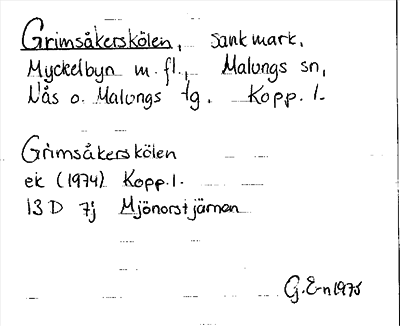 Grimsåkerskölen, sankmark,
Myckelbyn m.fl., Malungs sn,
Nås o. Malungs tg. Kopp. l.
Grimsåkerskölen
ek (1974) Kopp. l.
13 D 7j Mjönorstjärnen
G. E-n 1975